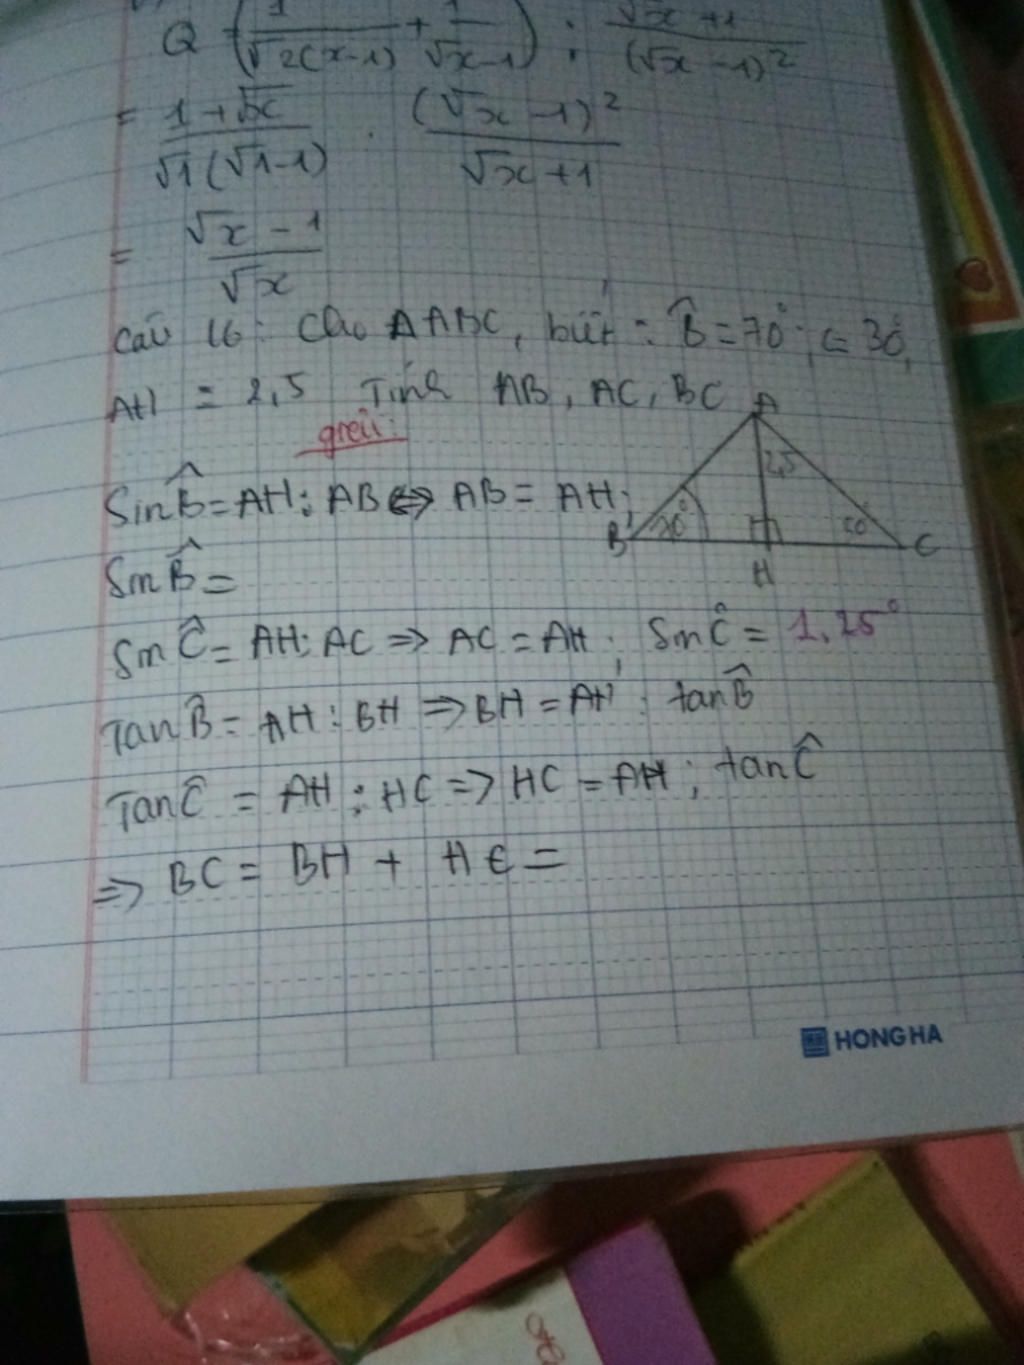 Q = (1/√2(x-1) + 1/√x-1) : √x+1/(√x-1)²
= 1+√x/√1(√1-1) . (√x-1)²/√x+1
= √x-1/√x
câu 16: Cho ΔABC, biết: B̂=70°; C=30°,
AH = 2,5 Tính AB, AC, BC
giải:
A
2,5
70°
B
C
H
SinB̂=AH:AB⇔ AB= AH:
SinB̂=
SinĈ= AH:AC ⇒ AC=AH : SinĈ= 1,25°
TanB̂= AH:BH ⇒BH=AH : tanB̂
TanĈ = AH:HC ⇒ HC=AH : tanĈ
⇒ BC= BH + HC =
HONG HA